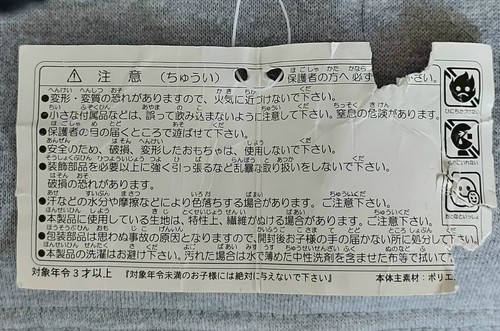 ⚠ 注意(ちゅうい) 保護者の方へ 必ず さい。
●変形・変質の恐れがありますので、火気に近づけないで下さい。
●小さな付属品などは、誤って飲み込まないように注意して下さい。窒息の危険があります。
●保護者の目の届くところで遊ばせて下さい。
●安全のため、破損、変形したおもちゃは、使用しないで下さい。
●装飾部品を必要以上に強く引っ張るなど乱暴な取り扱いをしないで下さい。
破損の恐れがあります。
●汗などの水分や摩擦などにより色落ちする場合があります。ご注意下さい。
●本製品に使用している生地は、特性上、繊維がぬける場合があります。ご注意下さい。
●包装部品は思わぬ事故の原因となりますので、開封後お子様の手の届かない所に処分して下
●本製品の洗濯はお避け下さい。汚れた場合は水で薄めた中性洗剤を含ませた布等で拭いて下
対象年令3才以上 『対象年令未満のお子様には絶対に与えないで下さい』 本体主素材:ポリエ